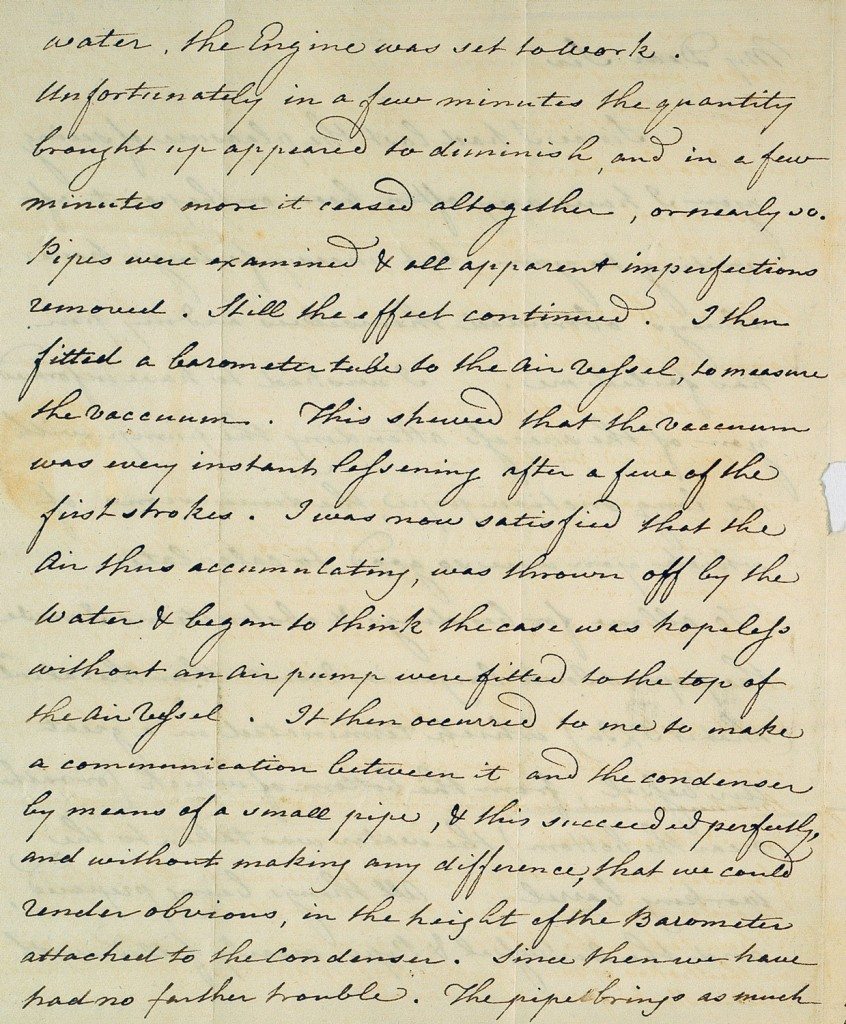 water, the Engine was set to work.
Unfortunately in a few minutes the quantity
brought up appeared to diminish, and in a few
minutes more it ceased altogether, or nearly so.
Pipes were examined & all apparent imperfections
removed. Still the effect continued. I then
fitted a barometer tube to the Air Vessel, to measure
the vaccuum. This shewed that the vaccuum
was every instant lessening after a few of the
first strokes. I was now satisfied that the
Air thus accumulating, was thrown off by the
Water & began to think the case was hopeless
without an Air pump were fitted to the top of
the Air Vessel. It then occurred to me to make
a communication between it and the condenser
by means of a small pipe, & this succeeded perfectly,
and without making any difference, that we could
render obvious, in the height of the Barometer
attached to the Condenser. Since then we have
had no farther trouble. The pipe brings as much